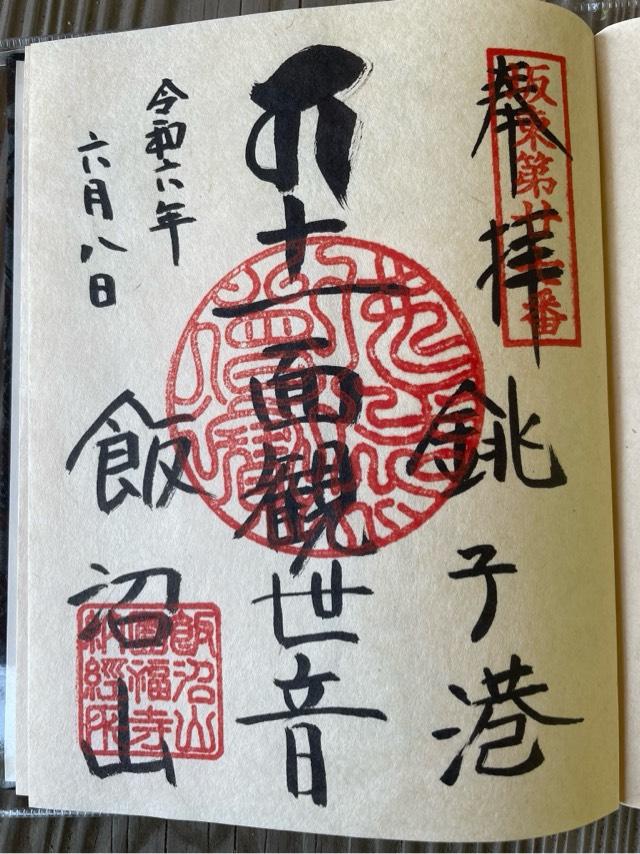 奉拝
坂東第廿七番
銚子港
十一面観世音
令和六年
六月八日
飯沼山
飯沼山
圓福寺
納経所